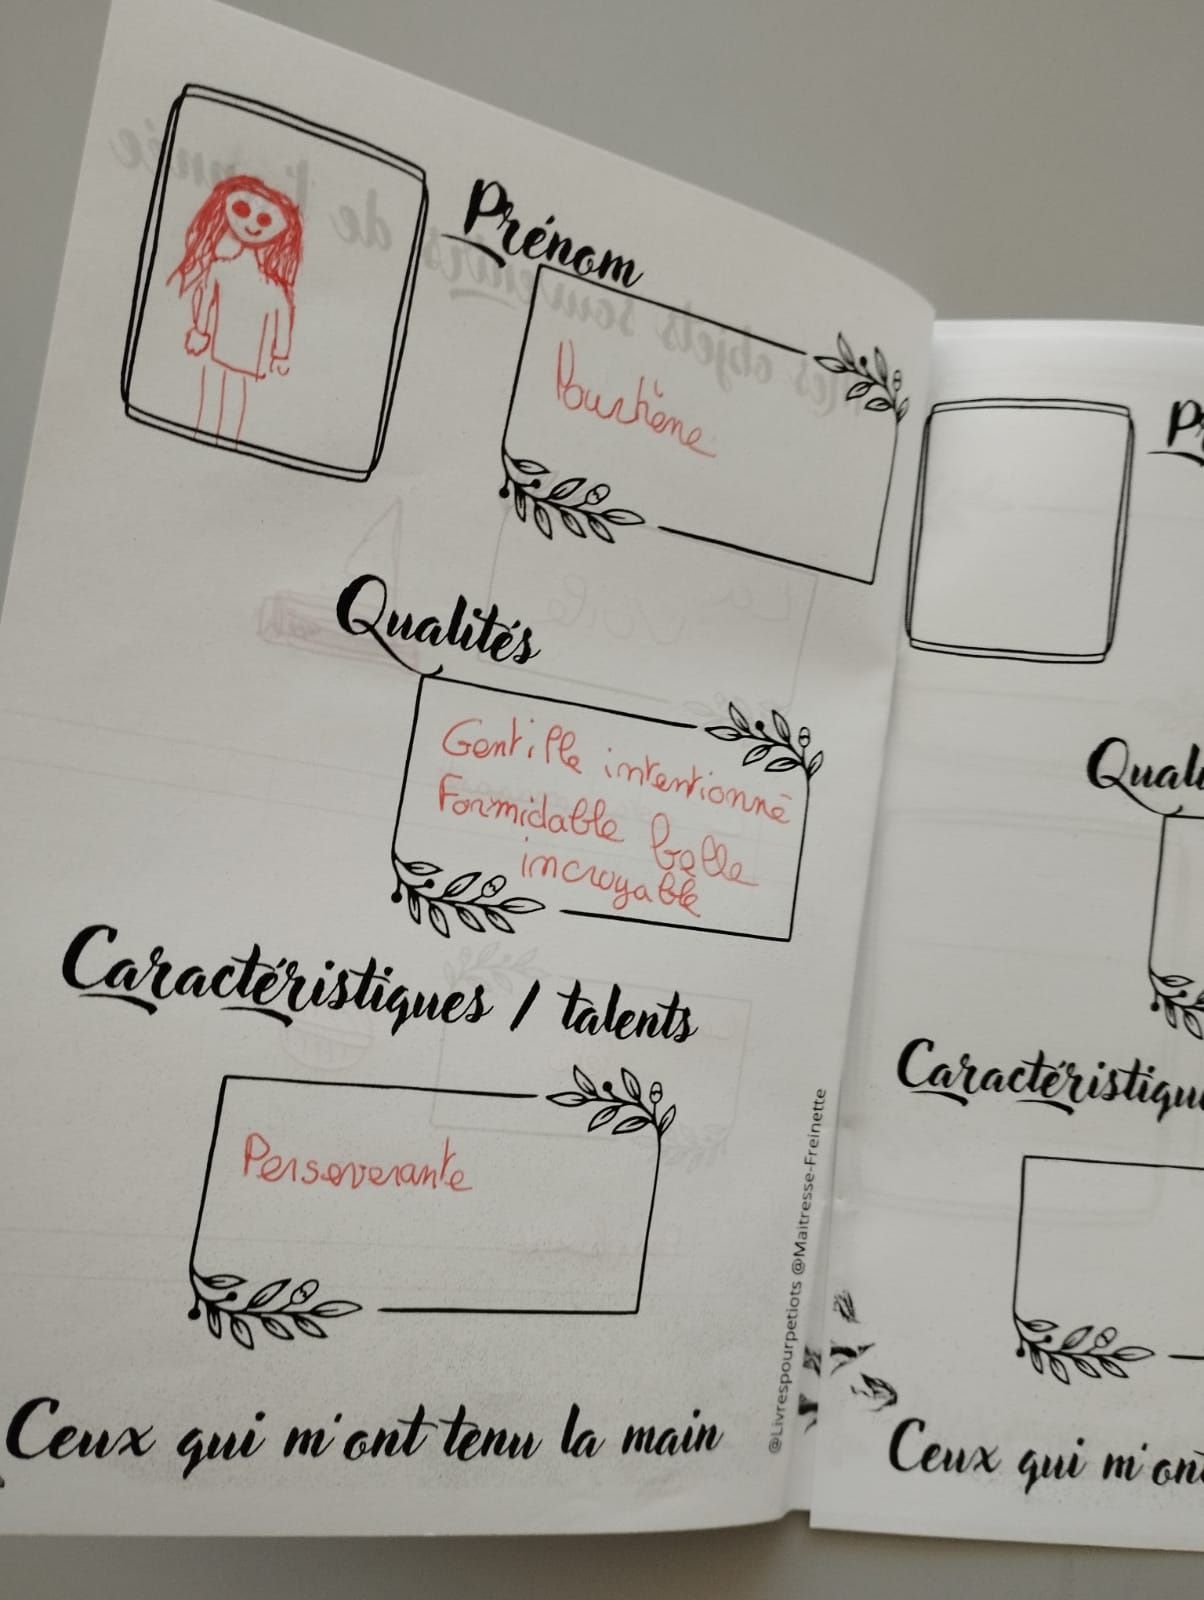 Prénom
Qualités
Gentille intentionné
Formidable belle
incroyable
Caractéristiques / talents
Perseverante
Ceux qui m'ont tenu la main
@Livrespourpetiots @Maitresse-Freinette
mes objets souvenirs de l'année
La voile
Pr
Quali
Caractéristique
Ceux qui m'ont